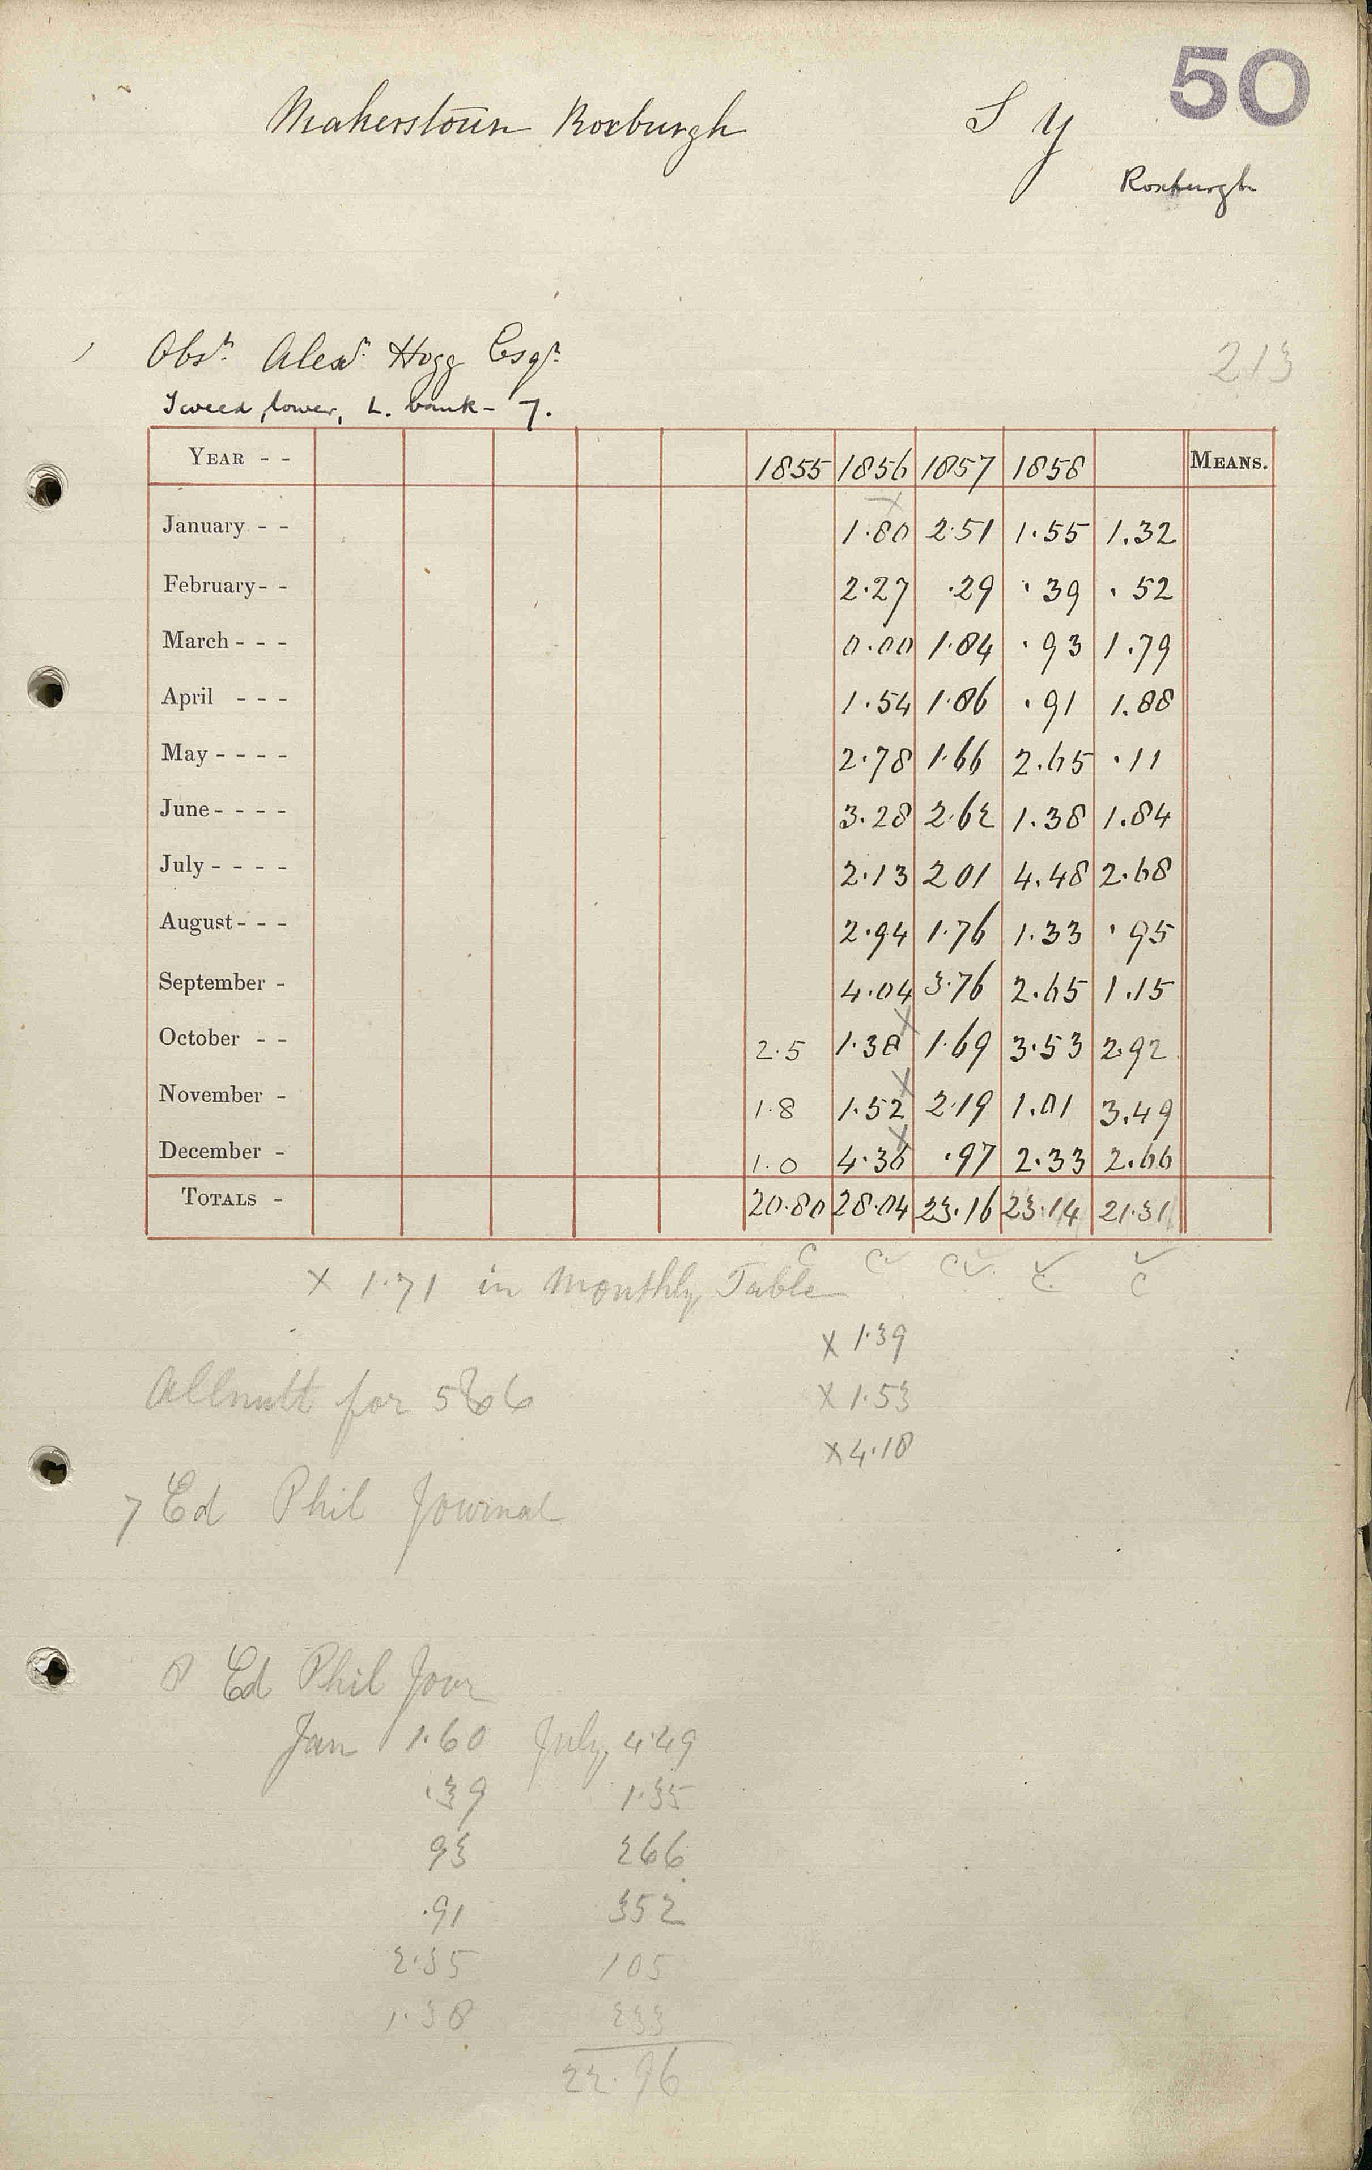 50
Makerstoun Roxburgh S Y
Roxburgh
213
Obsr. Alexr. Hogg Esqr.
Tweed, lower, L. bank - 7.
YEAR - - 1855 1856 1857 1858 MEANS.
January - - 1.80 2.51 1.55 1.32
February - - 2.27 .29 .39 .52
March - - - 0.00 1.84 .93 1.79
April - - - 1.54 1.86 .91 1.88
May - - - - 2.78 1.66 2.65 .11
June - - - - 3.28 2.62 1.38 1.84
July - - - - 2.13 2 01 4.48 2.68
August - - - 2.94 1.76 1.33 .95
September - 4.04 3.76 2.65 1.15
October - - 2.5 1.38 X 1.69 3.53 2.92
November - 1.8 1.52 X 2.19 1.01 3.49
December - 1.0 4.36 X .97 2.33 2.66
TOTALS - 20.80 28.04 23.16 23.14 21.31
C C✓ C✓ ✓C ✓C
X 1.71 in Monthly Table
X 1.39
Allnutt for 5 & 6 X 1.53
X 4.18
7 Ed Phil Journal
8 Ed Phil Jour
Jan 1.60 July 4.49
.39 1.35
93 266
.91 352
2.35 105
1.38 233
22.96